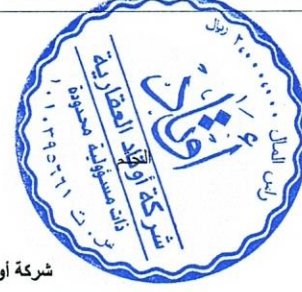 رأس المال ٢,٠٠٠,٠٠٠ ريال
أوتاد
شركة أوتاد العقارية
ذات مسؤولية محدودة
س . ت ١٠١٠٣٩٥٦٦١
الختم
شركة أو